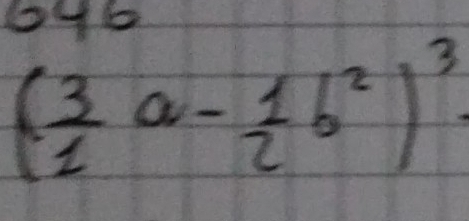 646
(3/1 a - 1/2 b²)³